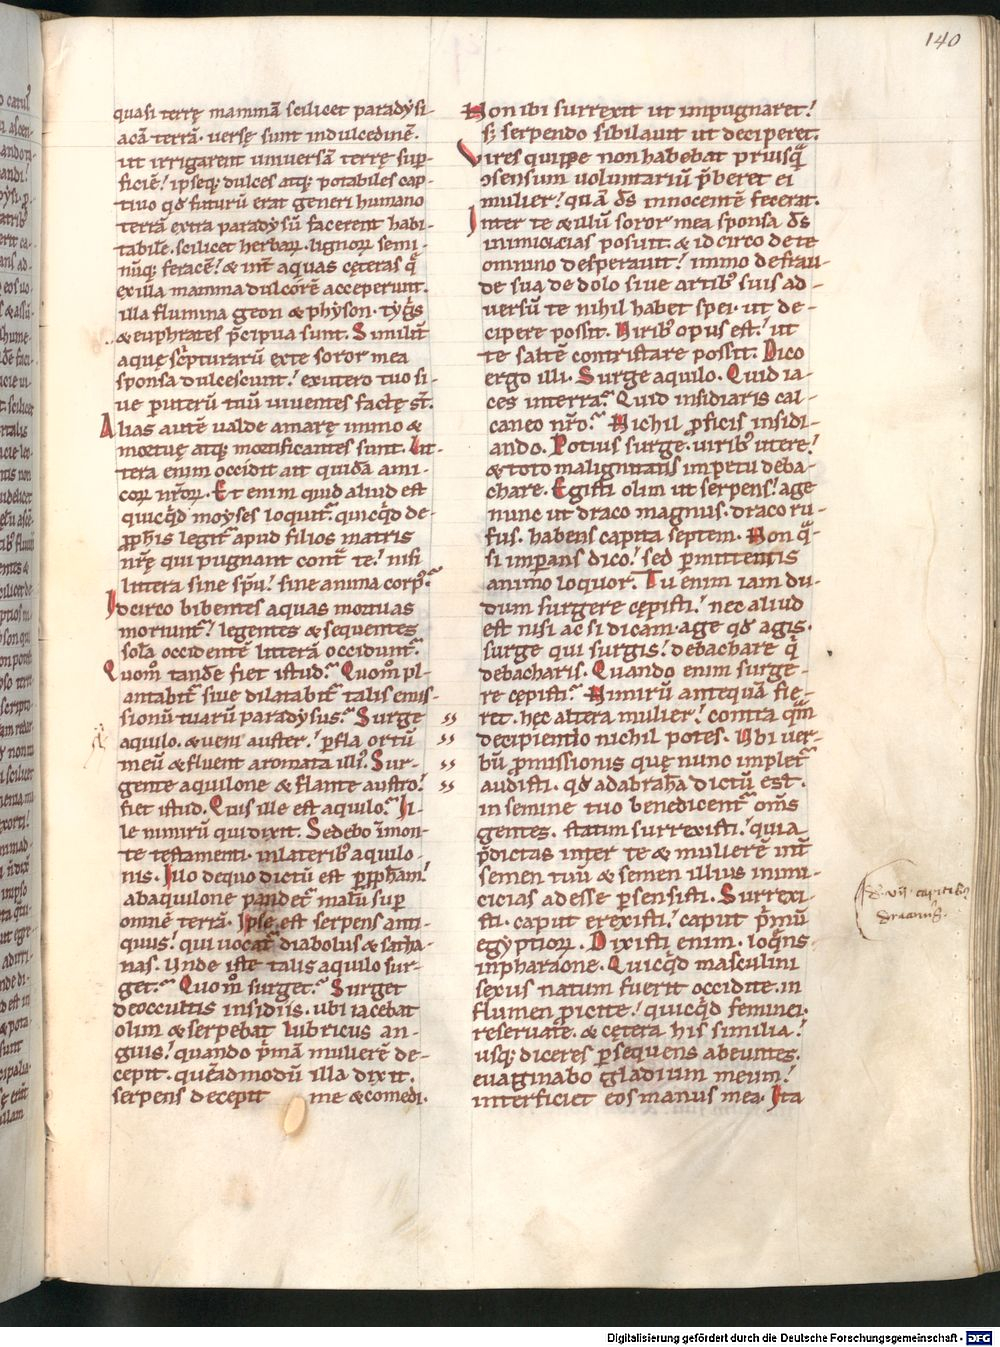 140
quasi terrę mammā scilicet paradysi-
acā terrā. versę sunt in dulcedinē.
ut irrigarent universā terrę sup-
ficiē! ipseq; dulces atq; potabiles cap-
tivo qd futurū erat generi humano
terrā extra paradysū facerent habi-
tabile. scilicet herbaꝝ. lignoꝝ semi-
nūq; feracē! & int aquas cęteras q̄
ex illa mamma dulcorē acceperunt.
illa flumina geon & physon. tygris
& euphrates p̄cipua sunt. Similit̄
aquę sc̄pturarū ex te soror mea
sponsa dulcescunt! ex utero tuo si-
ve p uterū tuū viventes factę st̄.
Alias autē valde amarę immo &
mortuę atq; mortificantes sunt. Lit-
tera enim occidit ait quidā ami-
coꝝ nr̄oꝝ. Et enim quid aliud est
quicq̄d moyses loquit̄. quicq̄d de
pphis legit̄ apud filios matris
nr̄ę qui pugnant cont̄ te! nisi
littera sine sp̄u! sine anima corp;
Idcirco bibentes aquas mortuas
moriunt̄! legentes & sequentes
solā occidentē litterā occidunt̄.
Quom̄ tandē fiet istud? Quom̄ pl-
antabit̄ sive dilatabit̄ talis emis-
sionū tuarū paradysus? Surge
aquilo. & veni auster! pfla ortū
meū & fluent aromata illi. Sur-
gente aquilone & flante austro!
fiet istud. Quis ille est aquilo? Il-
le nimirū qui dixit. Sedebo ī mon-
te testamenti. in laterib; aquilo-
nis. Illo de quo dictū est p pphām!
ab aquilone pandet̄ malū sup
omnē terrā. Ipse est serpens anti-
quus! qui vocat̄ diabolus & satha-
nas. Unde iste talis aquilo sur-
get? Quom̄ surget? Surget
de occultis insidiis. ubi iacebat
olim & serpebat lubricus an-
guis! quando p̄mā mulierē de-
cepit. quēadmodū illa dixit.
serpens decepit me & comedi.
Non ibi surrexit ut impugnaret!
s; serpendo sibilavit ut deciperet.
Vires quippe non habebat priusq̄
ↄsensum voluntariū p̄beret ei
mulier! quā ds̄ innocentē fecerat.
Inter te & illū soror mea sponsa ds̄
inimicicias posuit. & idcirco de te
omnino desperavit! immo de frau-
de sua de dolo sive artib; suis ad-
versū te nihil habet spei. ut de-
cipere possit. Virib; opus est! ut
te saltē contristare possit. Dico
ergo illi. Surge aquilo. Quid ia-
ces in terra? Quid insidiaris cal-
caneo nr̄o? Nichil pficis insidi-
ando. Potius surge. virib; utere!
& toto malignitatis impetu deba-
chare. Egisti olim ut serpens! age
nunc ut draco magnus. draco ru-
fus. habens capita septem. Non q̄-
si imperans dico! sed pmittentis
animo loquor. Tu enim iam du-
dum surgere cępisti! nec aliud
est nisi ac si dicam. age qd agis.
surge qui surgis! debachare q̄
debacharis. Quando enim surge-
re cępisti? Nimirū antequā fie-
ret. hec altera mulier! contra quā
decipiendo nichil potes. Ubi ver-
bū pmissionis quę nunc implet̄
audisti. qd ad abrahā dictū est.
in semine tuo benedicent̄ om̄s
gentes. statim surrexisti! quia
p̄dictas inter te & mulierē int̄
semen tuū & semen illius inimi-
cicias adesse psensisti. Surrexi-
sti. caput erexisti! caput p̄mū
egyptioꝝ. Dixisti enim. loq̄ns
in pharaone. Quicq̄d masculini
sexus natum fuerit occidite. in
flumen picite! quicq̄d feminei
reservate. & cętera his similia!
usq; diceres psequens abeuntes.
evaginabo gladium meum!
interficiet eos manus mea. Ita
de vii capitib;
draconis.
Digitalisierung gefördert durch die Deutsche Forschungsgemeinschaft - DFG